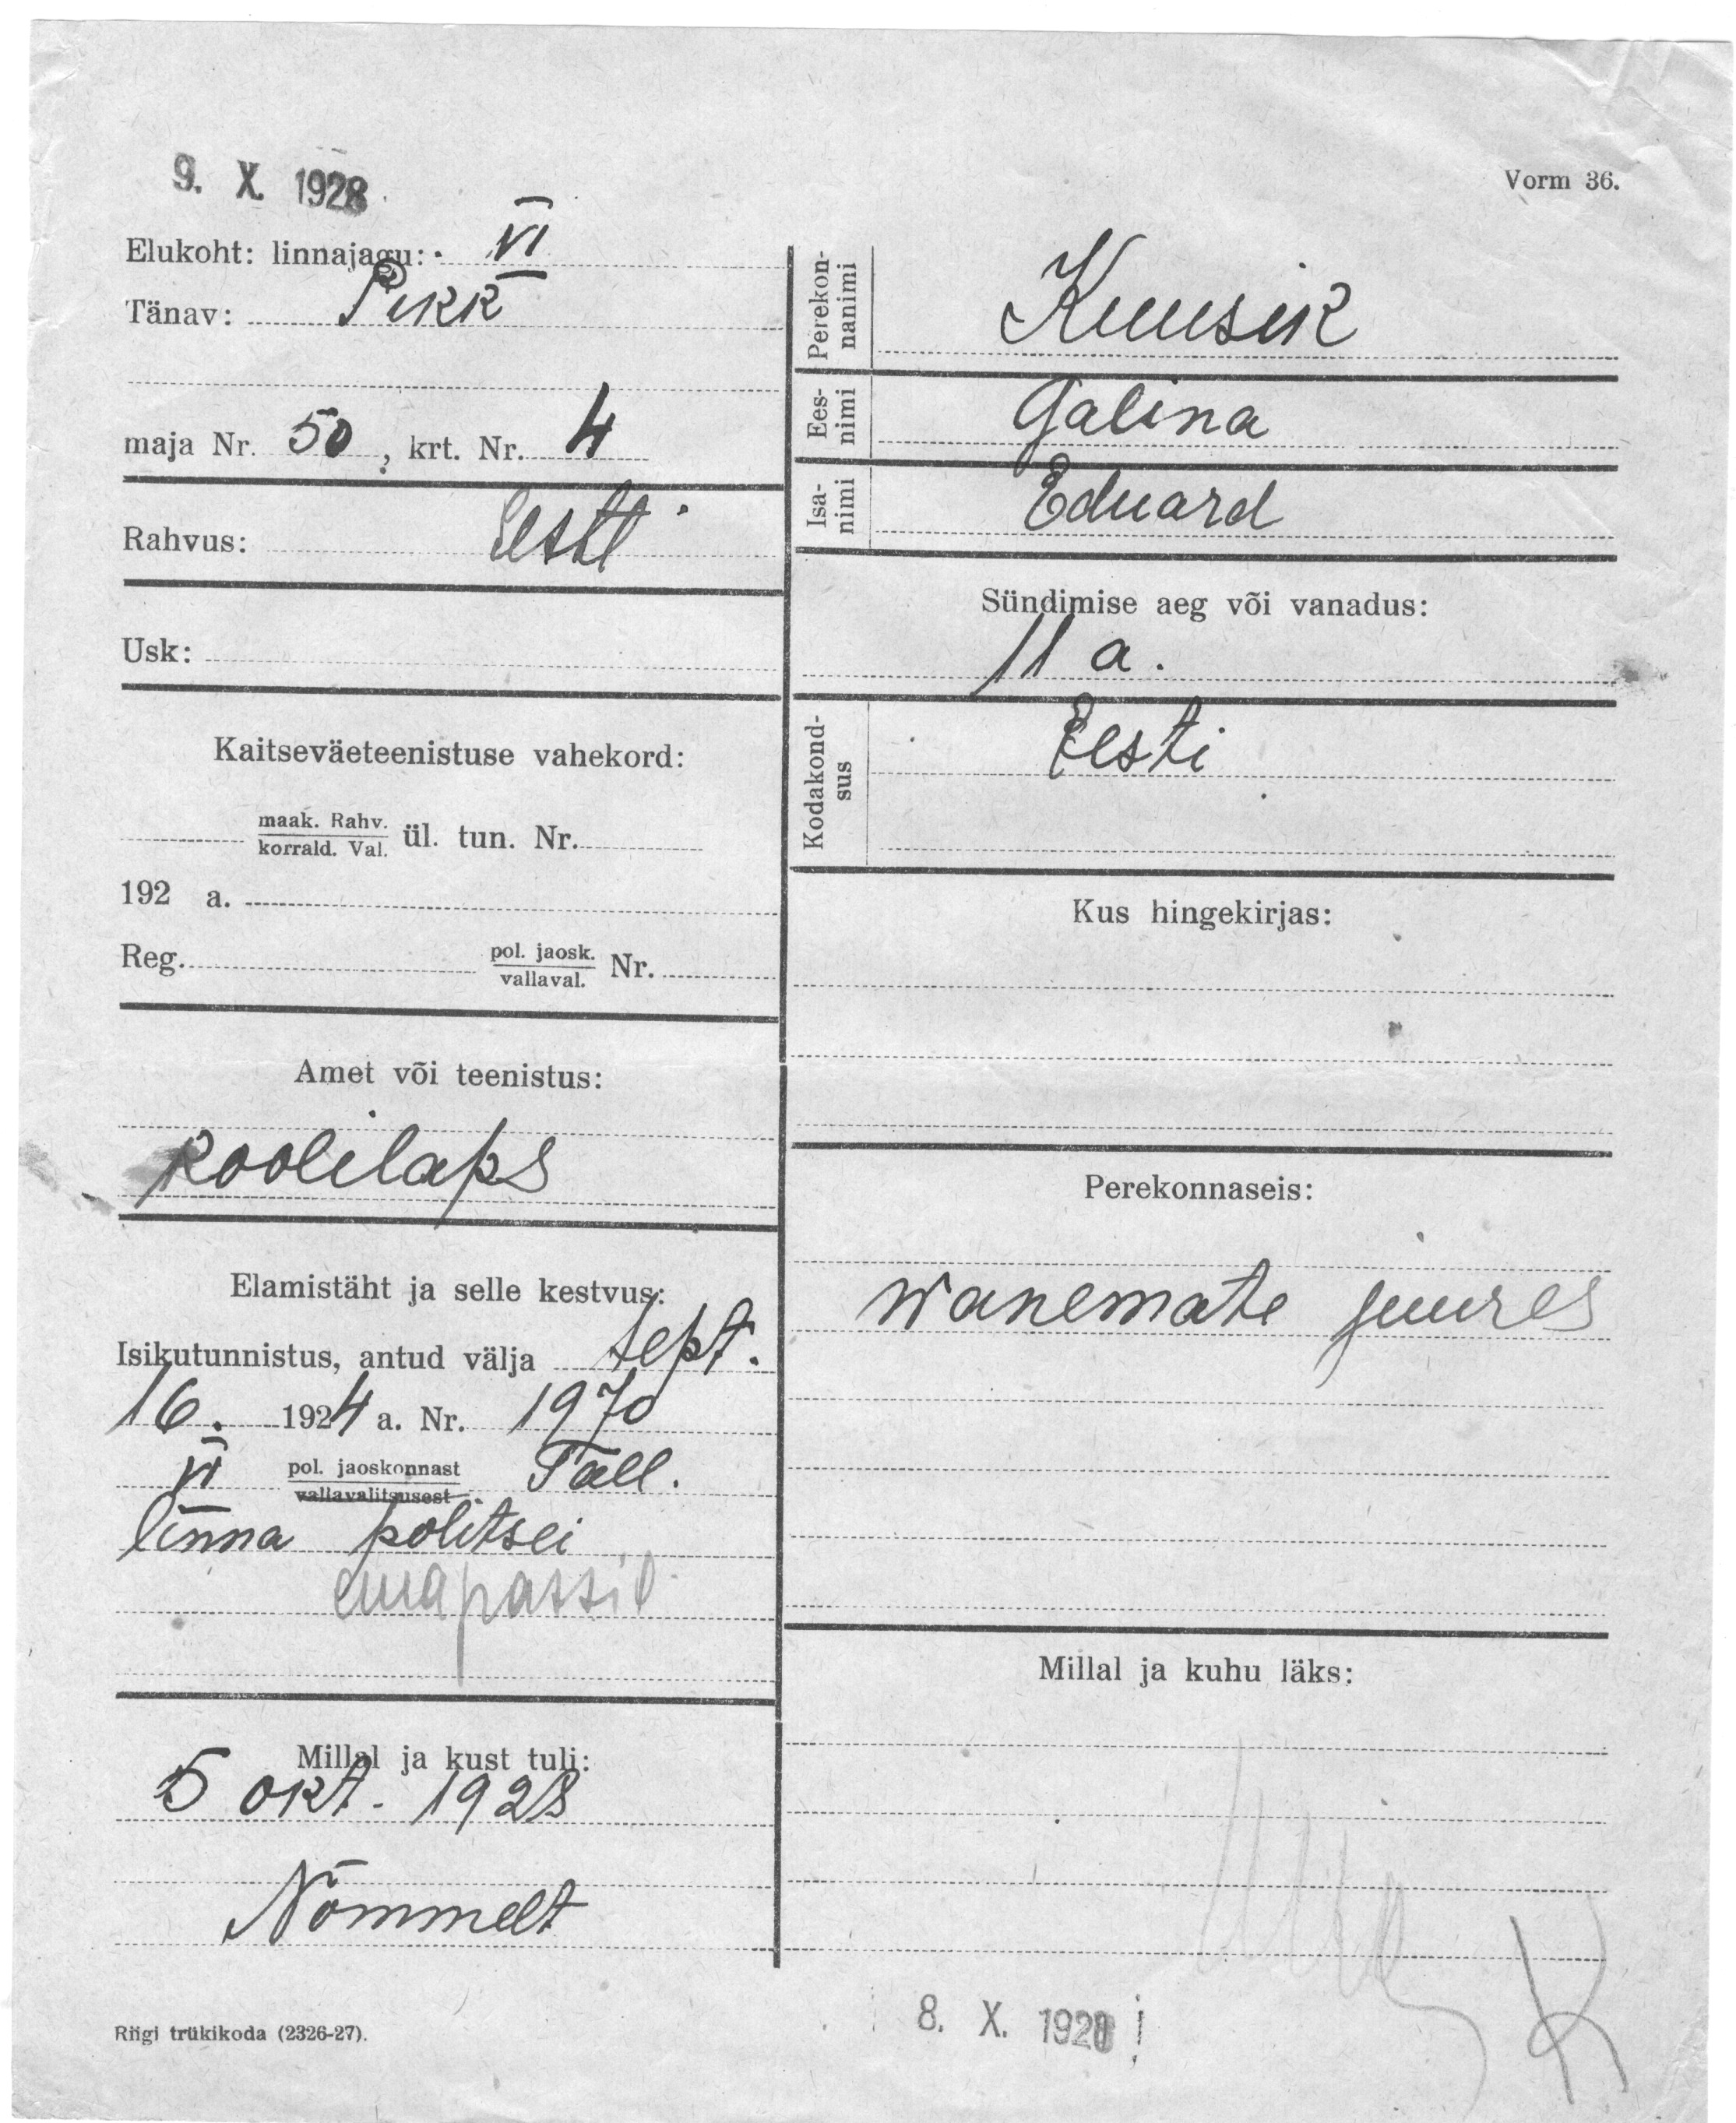 9. X. 1928
Vorm 36.
Elukoht: linnajagu: VI
Tänav: Pikk
maja Nr. 50, krt. Nr. 4
Rahvus: Eesti
Usk:
Kaitseväeteenistuse vahekord:
maak. Rahv.
korrald. Val. ül. tun. Nr.
192 a.
Reg. pol. jaosk.
vallaval. Nr.
Amet või teenistus:
koolilaps
Elamistäht ja selle kestvus:
Isikutunnistus, antud välja sept.
16. 1924 a. Nr. 1970
VI pol. jaoskonnast Tall.
vallavalitsusest
linna politsei
emapassil
Millal ja kust tuli:
5 okt. 1928
Nõmmelt
Riigi trükikoda (2326-27).
Perekon-
nanimi
Kuusik
Ees-
nimi
Galina
Isa-
nimi
Eduard
Sündimise aeg või vanadus:
11 a.
Kodakond-
sus
Eesti
Kus hingekirjas:
Perekonnaseis:
wanemate juures
Millal ja kuhu läks:
K
8. X. 1928